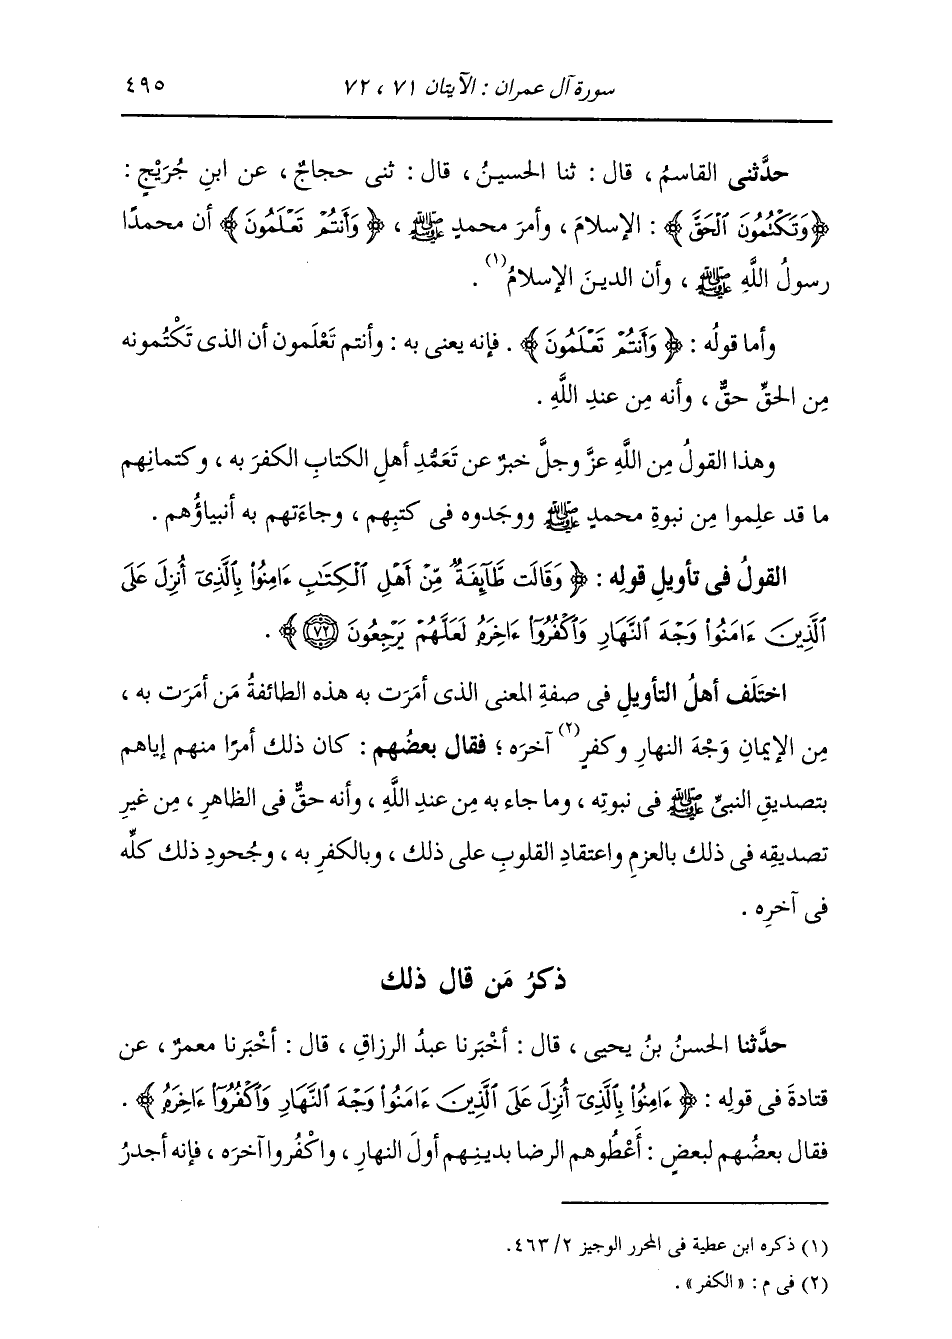 سورة آل عمران : الآيتان ٧١ ، ٧٢ ٤٩٥
حدَّثنى القاسمُ ، قال : ثنا الحسينُ ، قال : ثنى حجاجٌ ، عن ابنِ جُرَيْجٍ :
﴿وَتَكْتُمُونَ ٱلْحَقَّ﴾ : الإسلامَ ، وأمرَ محمدٍ ﷺ ، ﴿وَأَنتُمْ تَعْلَمُونَ﴾ أن محمدًا
رسولُ اللَّهِ ﷺ ، وأن الدينَ الإسلامُ(١) .
وأما قولُه : ﴿وَأَنتُمْ تَعْلَمُونَ﴾ . فإنه يعنى به : وأنتم تَعْلَمون أن الذى تَكْتُمونه
مِن الحقِّ حقٌّ ، وأنه مِن عندِ اللَّهِ .
وهذا القولُ مِن اللَّهِ عزَّ وجلَّ خبرٌ عن تَعَمُّدِ أهلِ الكتابِ الكفرَ به ، وكتمانِهم
ما قد علِموا مِن نبوةِ محمدٍ ﷺ ووجَدوه فى كتبِهم ، وجاءَتهم به أنبياؤُهم .
القولُ فى تأويلِ قولِه : ﴿وَقَالَت طَّآئِفَةٌ مِّنْ أَهْلِ ٱلْكِتَٰبِ ءَامِنُوا۟ بِٱلَّذِىٓ أُنزِلَ عَلَى
ٱلَّذِينَ ءَامَنُوا۟ وَجْهَ ٱلنَّهَارِ وَٱكْفُرُوٓا۟ ءَاخِرَهُ لَعَلَّهُمْ يَرْجِعُونَ ٧٢﴾ .
اختَلَف أهلُ التأويلِ فى صفةِ المعنى الذى أمَرَت به هذه الطائفةُ مَن أمَرَت به ،
مِن الإيمانِ وَجْهَ النهارِ وكفرٍ(٢) آخرَه ؛ فقال بعضُهم : كان ذلك أمرًا منهم إياهم
بتصديقِ النبىِّ ﷺ فى نبوتِه ، وما جاء به مِن عندِ اللَّهِ ، وأنه حقٌّ فى الظاهرِ ، مِن غيرِ
تصديقِه فى ذلك بالعزمِ واعتقادِ القلوبِ على ذلك ، وبالكفرِ به ، وجُحودِ ذلك كلِّه
فى آخرِه .
ذكرُ مَن قال ذلك
حدَّثنا الحسنُ بنُ يحيى ، قال : أخْبَرنا عبدُ الرزاقِ ، قال : أخْبَرنا معمرٌ ، عن
قتادةَ فى قولِه : ﴿ءَامِنُوا۟ بِٱلَّذِىٓ أُنزِلَ عَلَى ٱلَّذِينَ ءَامَنُوا۟ وَجْهَ ٱلنَّهَارِ وَٱكْفُرُوٓا۟ ءَاخِرَهُ﴾ .
فقال بعضُهم لبعضٍ : أَعْطُوهم الرضا بدينِهم أولَ النهارِ ، واكْفُروا آخرَه ، فإنه أجدرُ
(١) ذكره ابن عطية فى المحرر الوجيز ٢/ ٤٦٣.
(٢) فى م : «الكفر» .